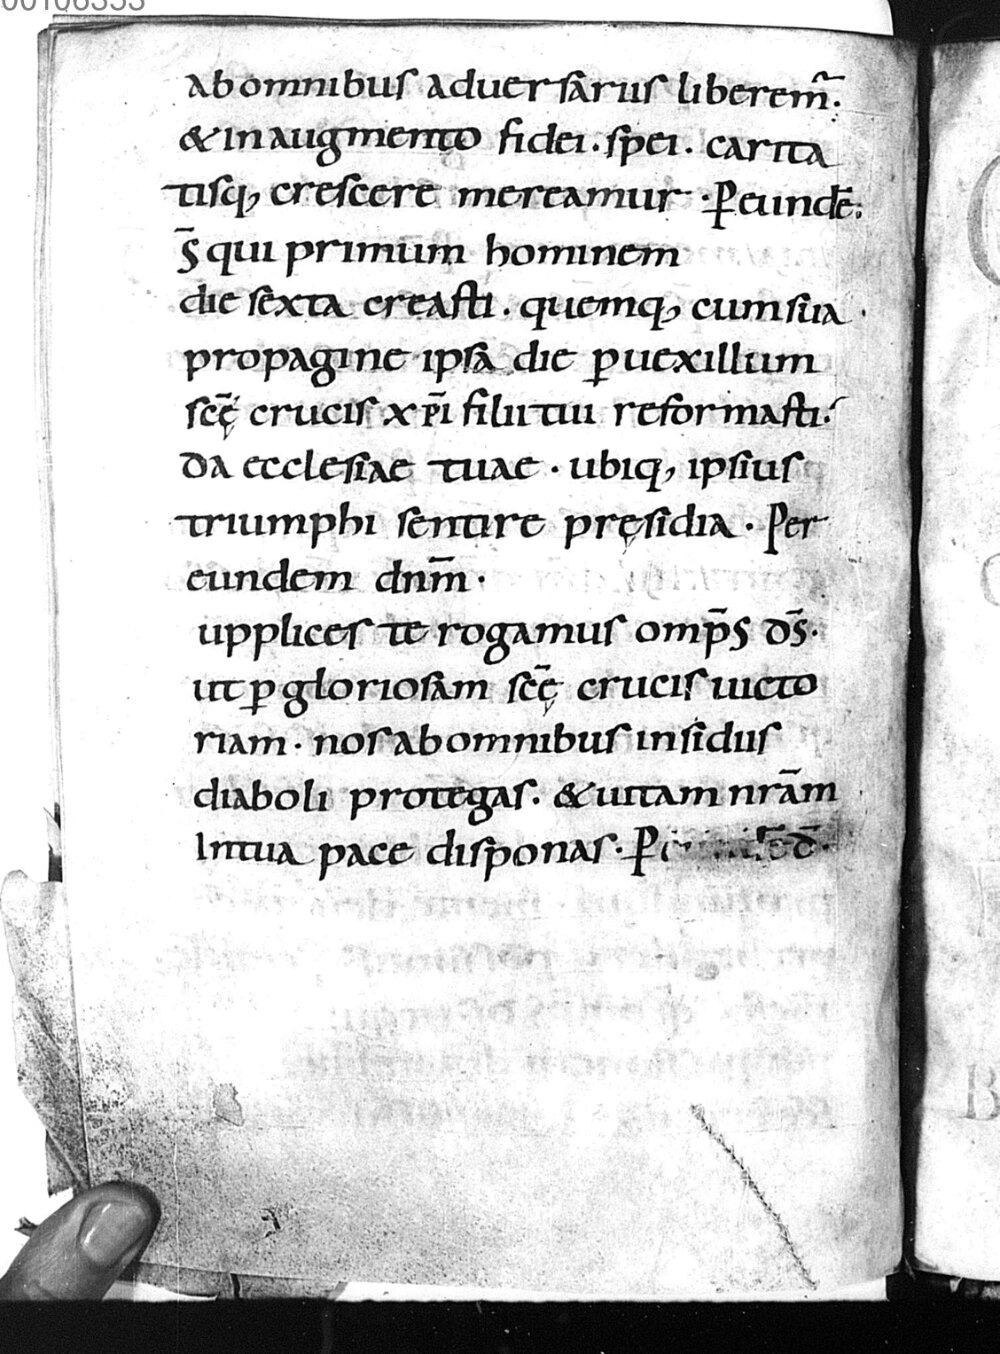 00106353
ab omnibus aduersariis liberem̃.
& in augmento fidei. spei. carita
tisq; crescere mereamur. p̱ eundē.
D̄S qui primum hominem
die sexta creasti. quemq; cum sua
propagine ipsa die p̱ uexillum
scę̄ crucis xp̄i filii tui reformasti.
da ecclesiae tuae. ubiq; ipsius
triumphi sentire pręsidia. Per
eundem dnm̄.
upplices te rogamus omp̄s d̄s.
ut p̱ gloriosam scę̄ crucis uicto
riam. nos ab omnibus insidiis
diaboli protegas. & uitam nrām
In tua pace disponas. P̱